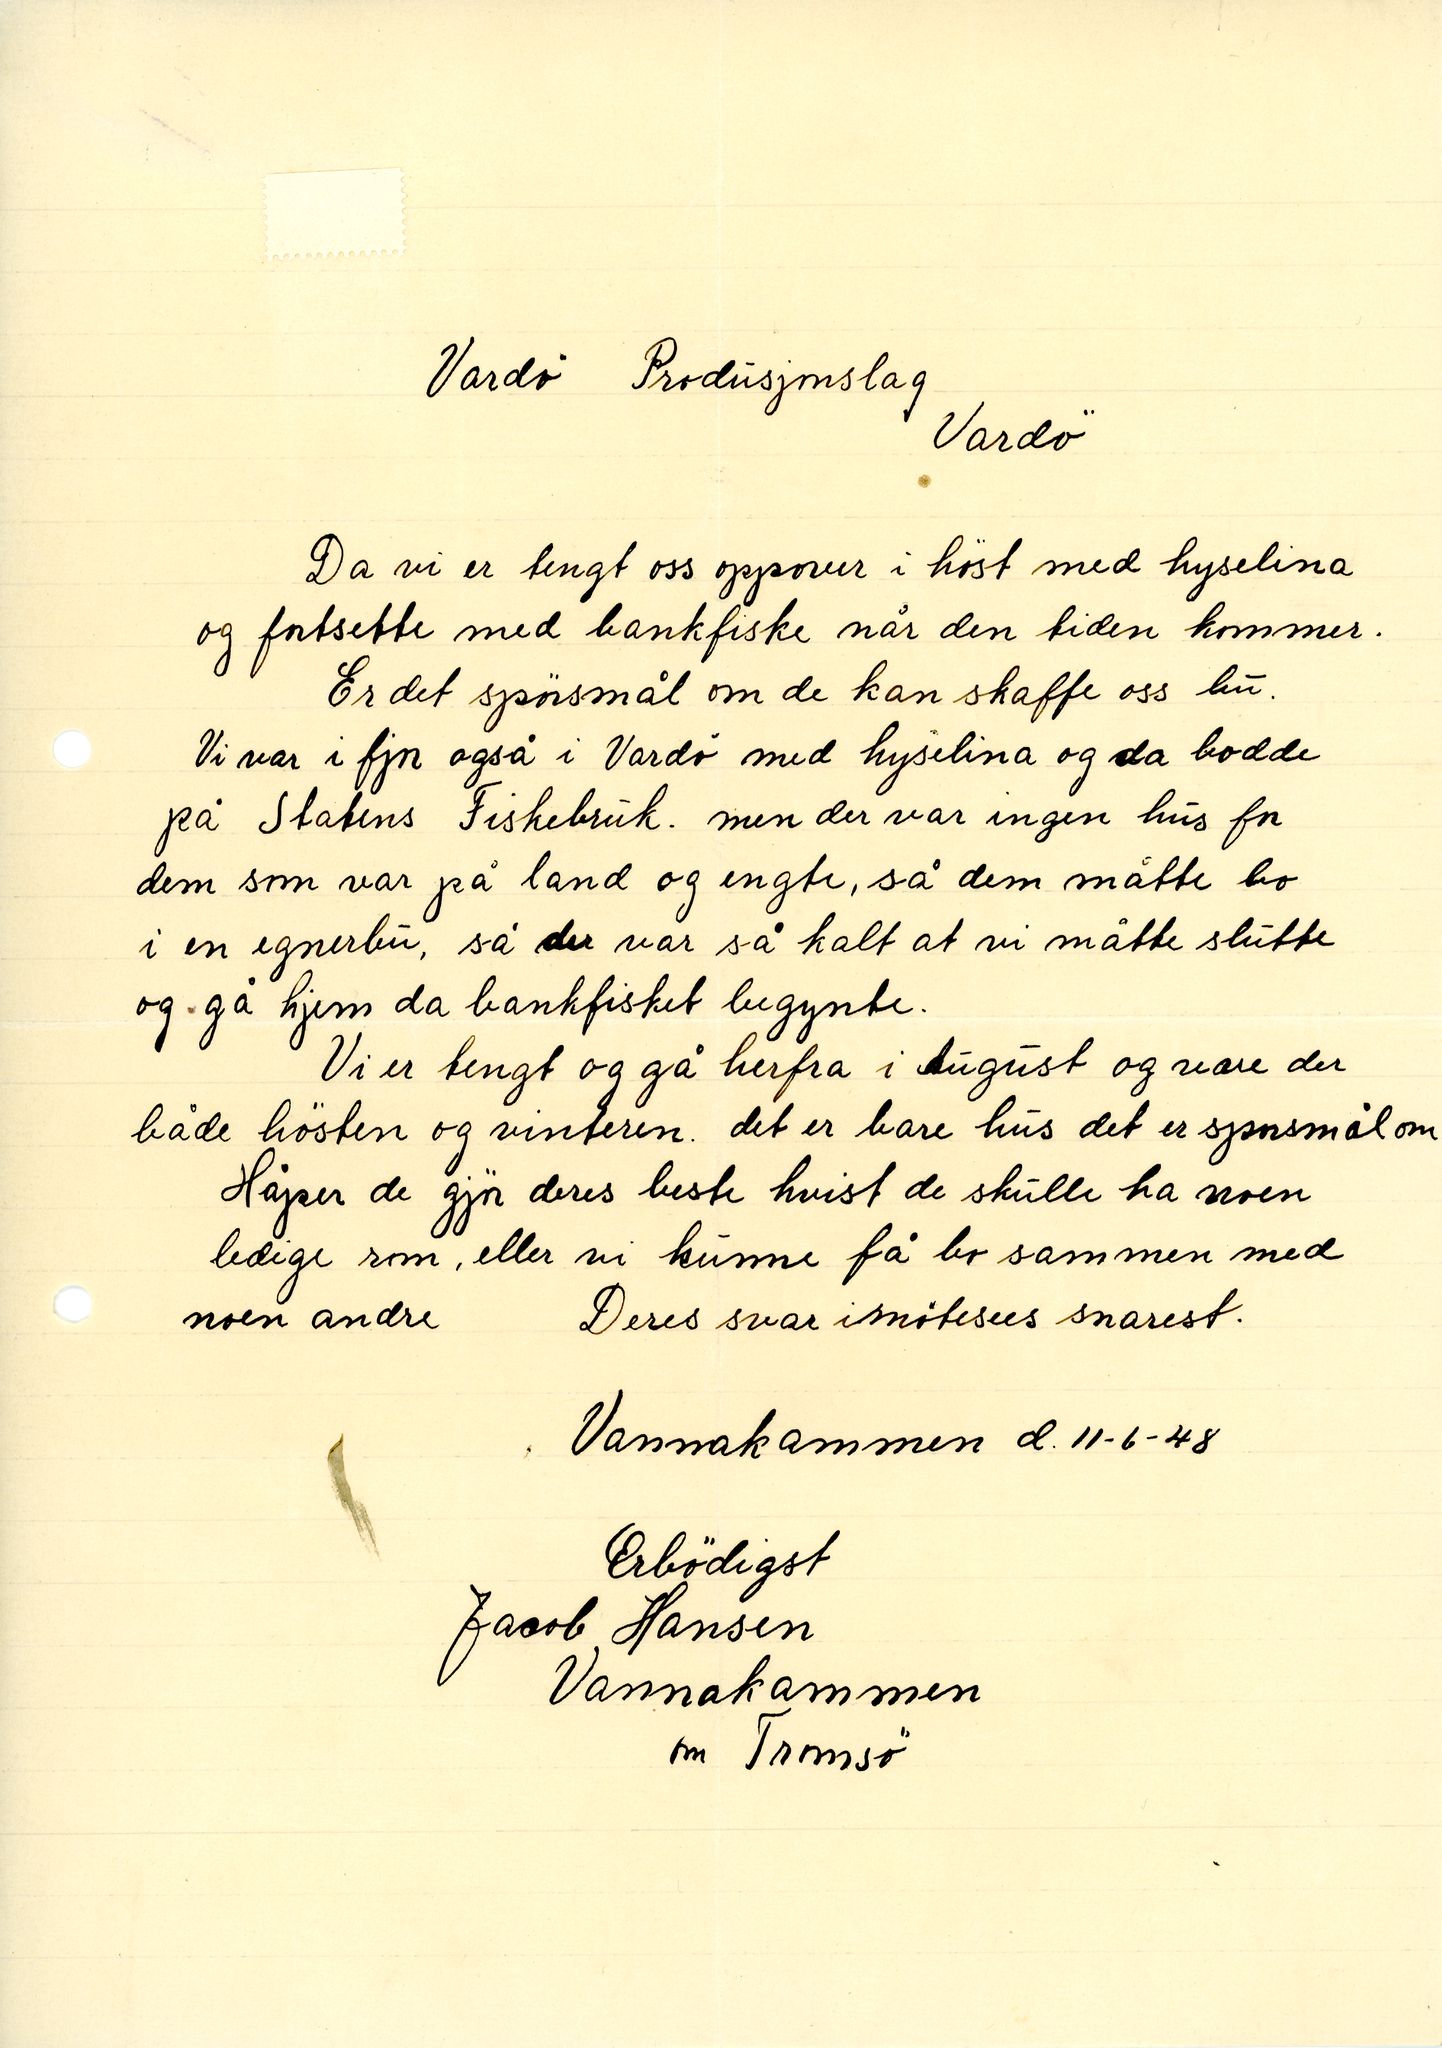 Vardö Produsjonslag
Vardö
Da vi er tengt oss oppover i höst med hyselina
og fortsette med bankfiske når den tiden kommer.
Er det spörsmål om de kan skaffe oss bu.
Vi var i fjor også i Vardö med hyselina og da bodde
på Statens Fiskebruk. men der var ingen hus for
dem som var på land og engte, så dem måtte bo
i en egnerbu, så der var så kalt at vi måtte slutte
og gå hjem da bankfisket begynte.
Vi er tengt og gå herfra i August og være der
både hösten og vinteren. det er bare hus det er spörsmål om
Håper de gjör deres beste hvist de skulle ha noen
ledige rom, eller vi kunne få bo sammen med
noen andre Deres svar imötesees snarest.
Vannakammen d. 11-6-48
Erbödigst
Jacob Hansen
Vannakammen
om Tromsö